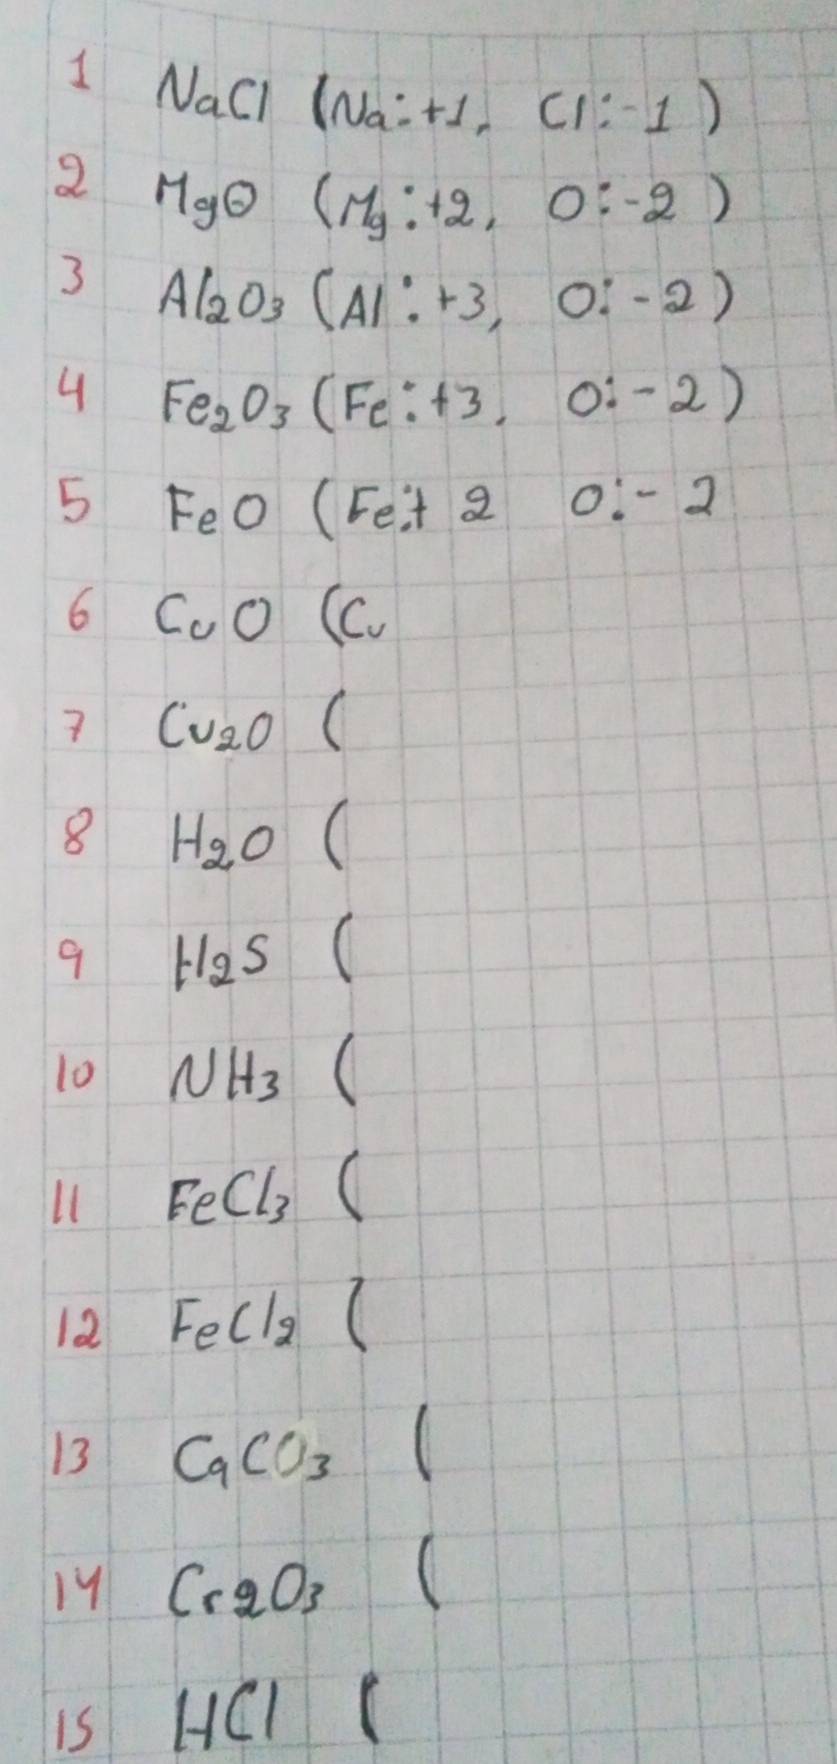 1 NaCl (Na:+1, Cl:-1)
2 MgO (Mg:+2, O:-2)
3 Al2O3 (Al:+3, O:-2)
4 Fe2O3 (Fe:+3, O:-2)
5 FeO (Fe:+2 O:-2
6 CuO (Cu
7 Cu2O (
8 H2O (
9 H2S (
10 NH3 (
11 FeCl3 (
12 FeCl2 (
13 CaCO3 (
14 Cr2O3 (
15 HCl (